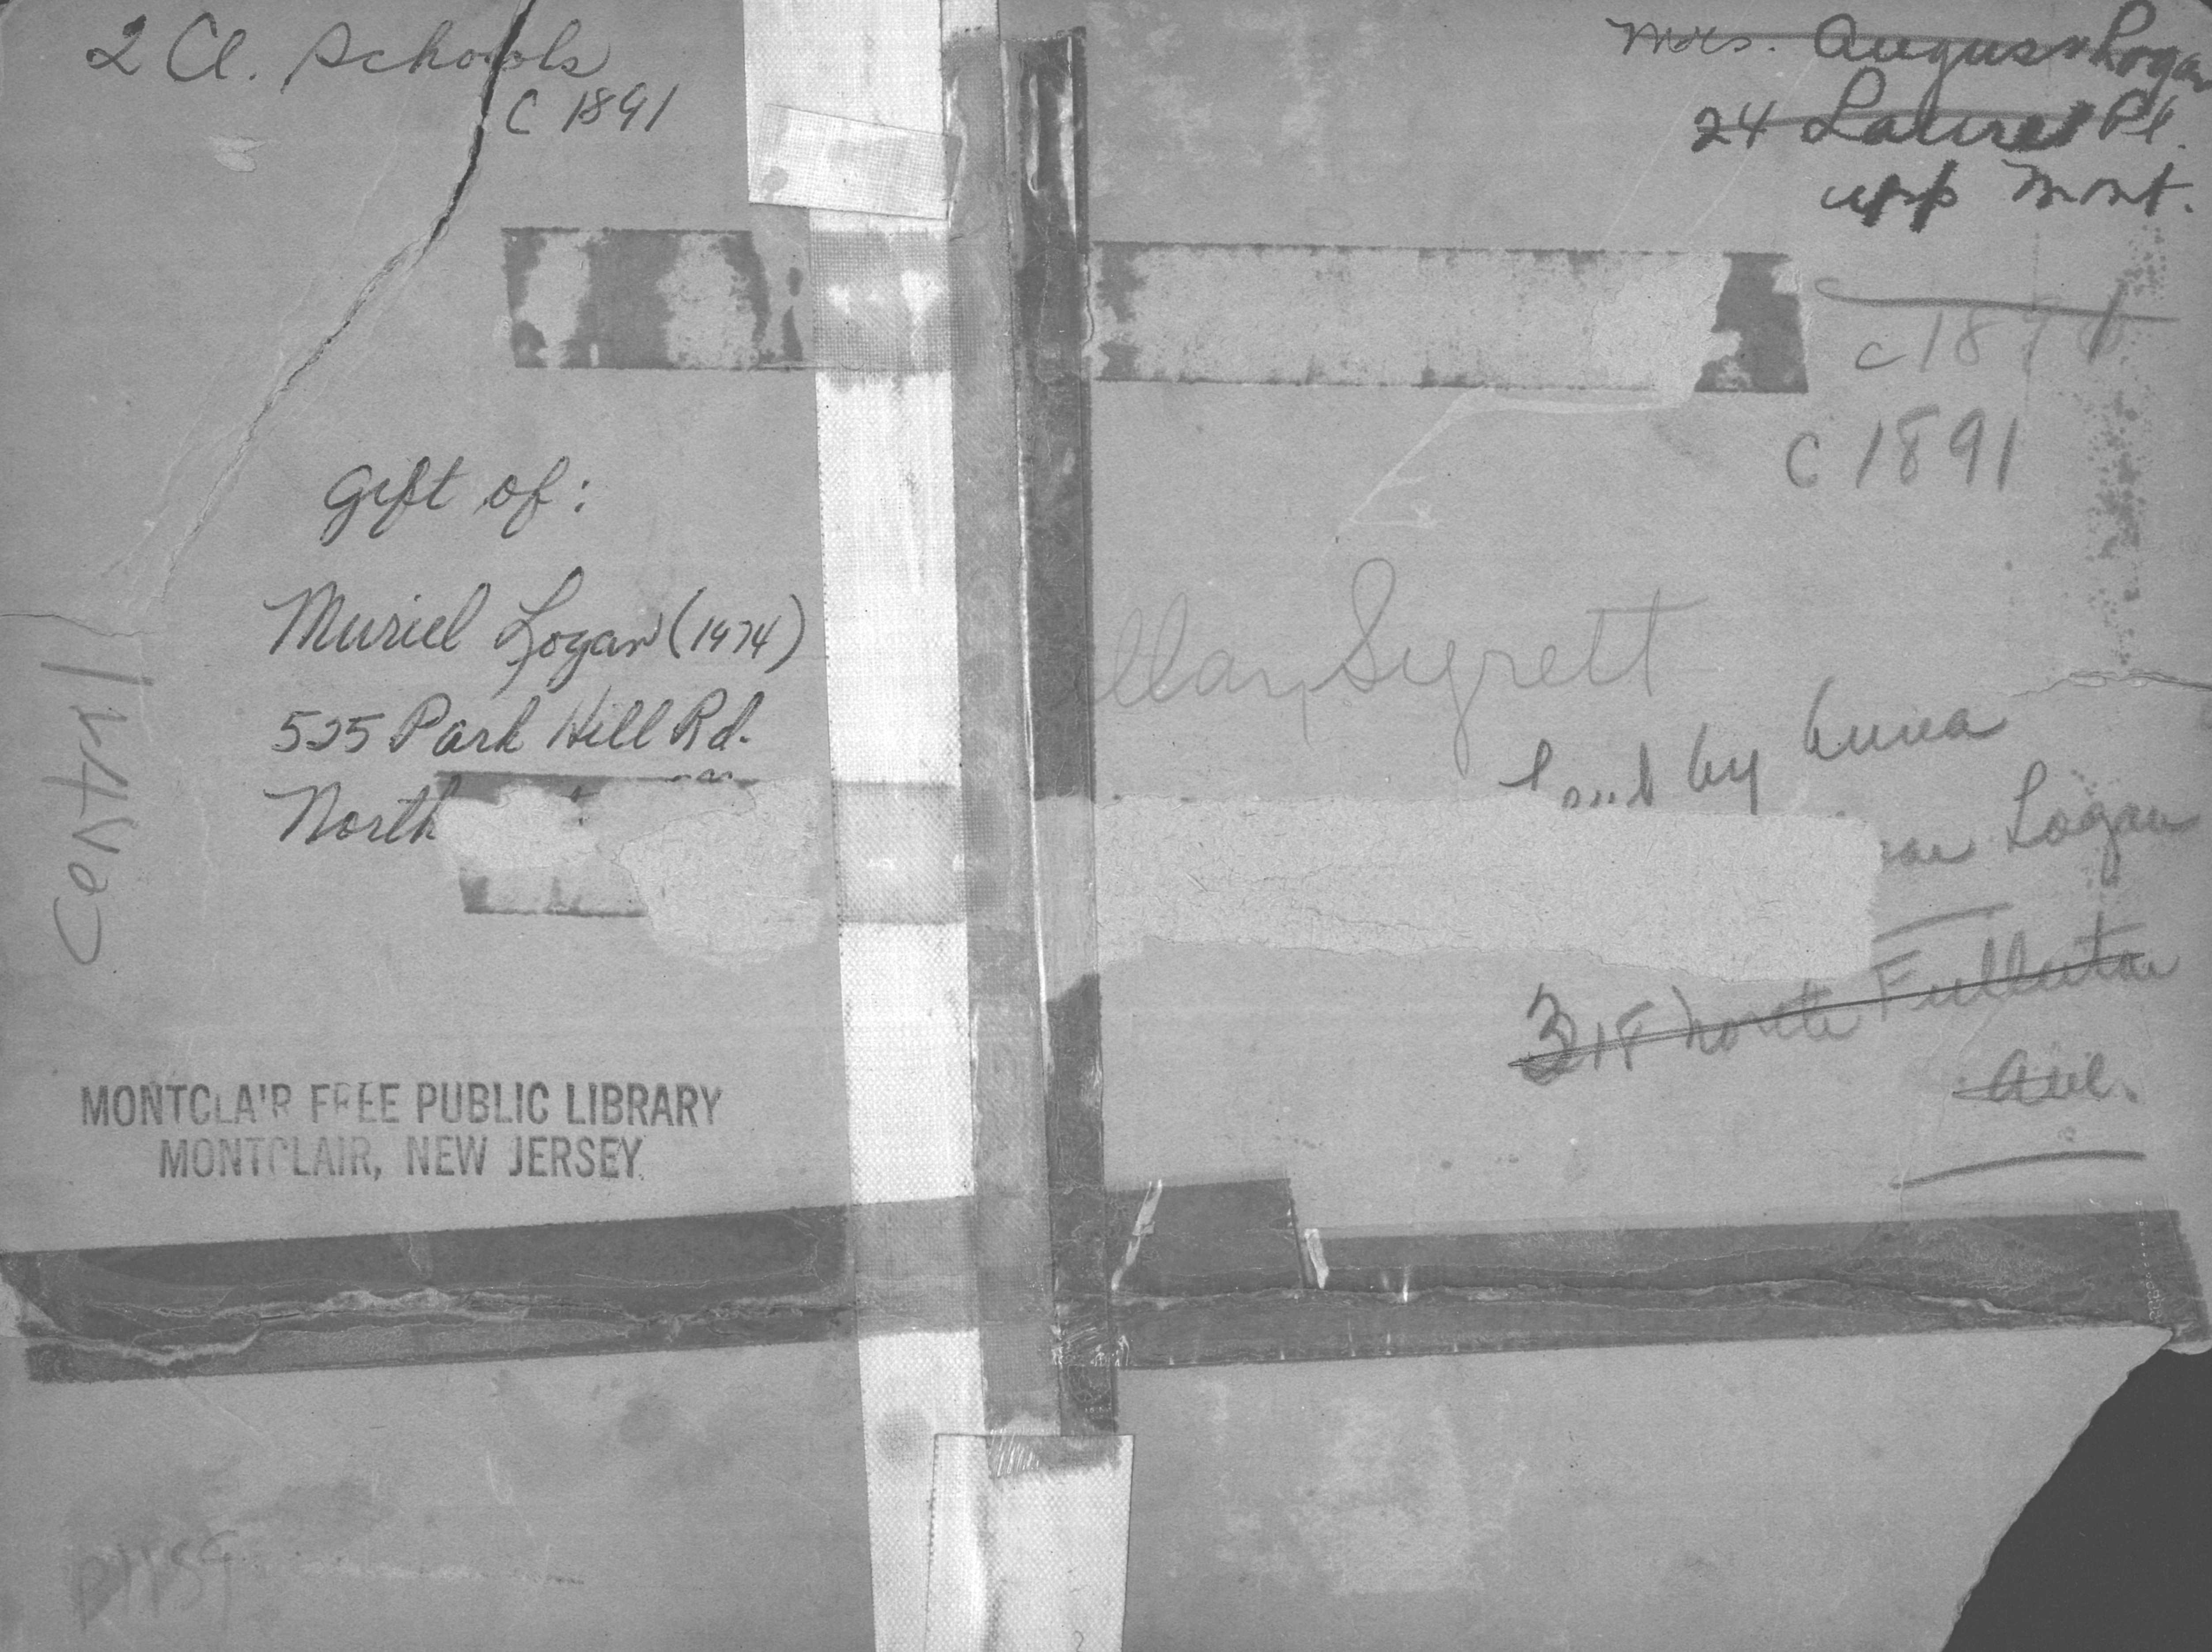 2 Cl. Schools
C 1891
Mrs. August Logan
24 Laurel Pl.
upp Mont.
C 1891
Gift of:
Muriel Logan (1974)
525 Park Hill Rd.
North
Central
Syrett
by Anna
Logan
318 North Fullerton
Ave.
MONTCLAIR FREE PUBLIC LIBRARY
MONTCLAIR, NEW JERSEY